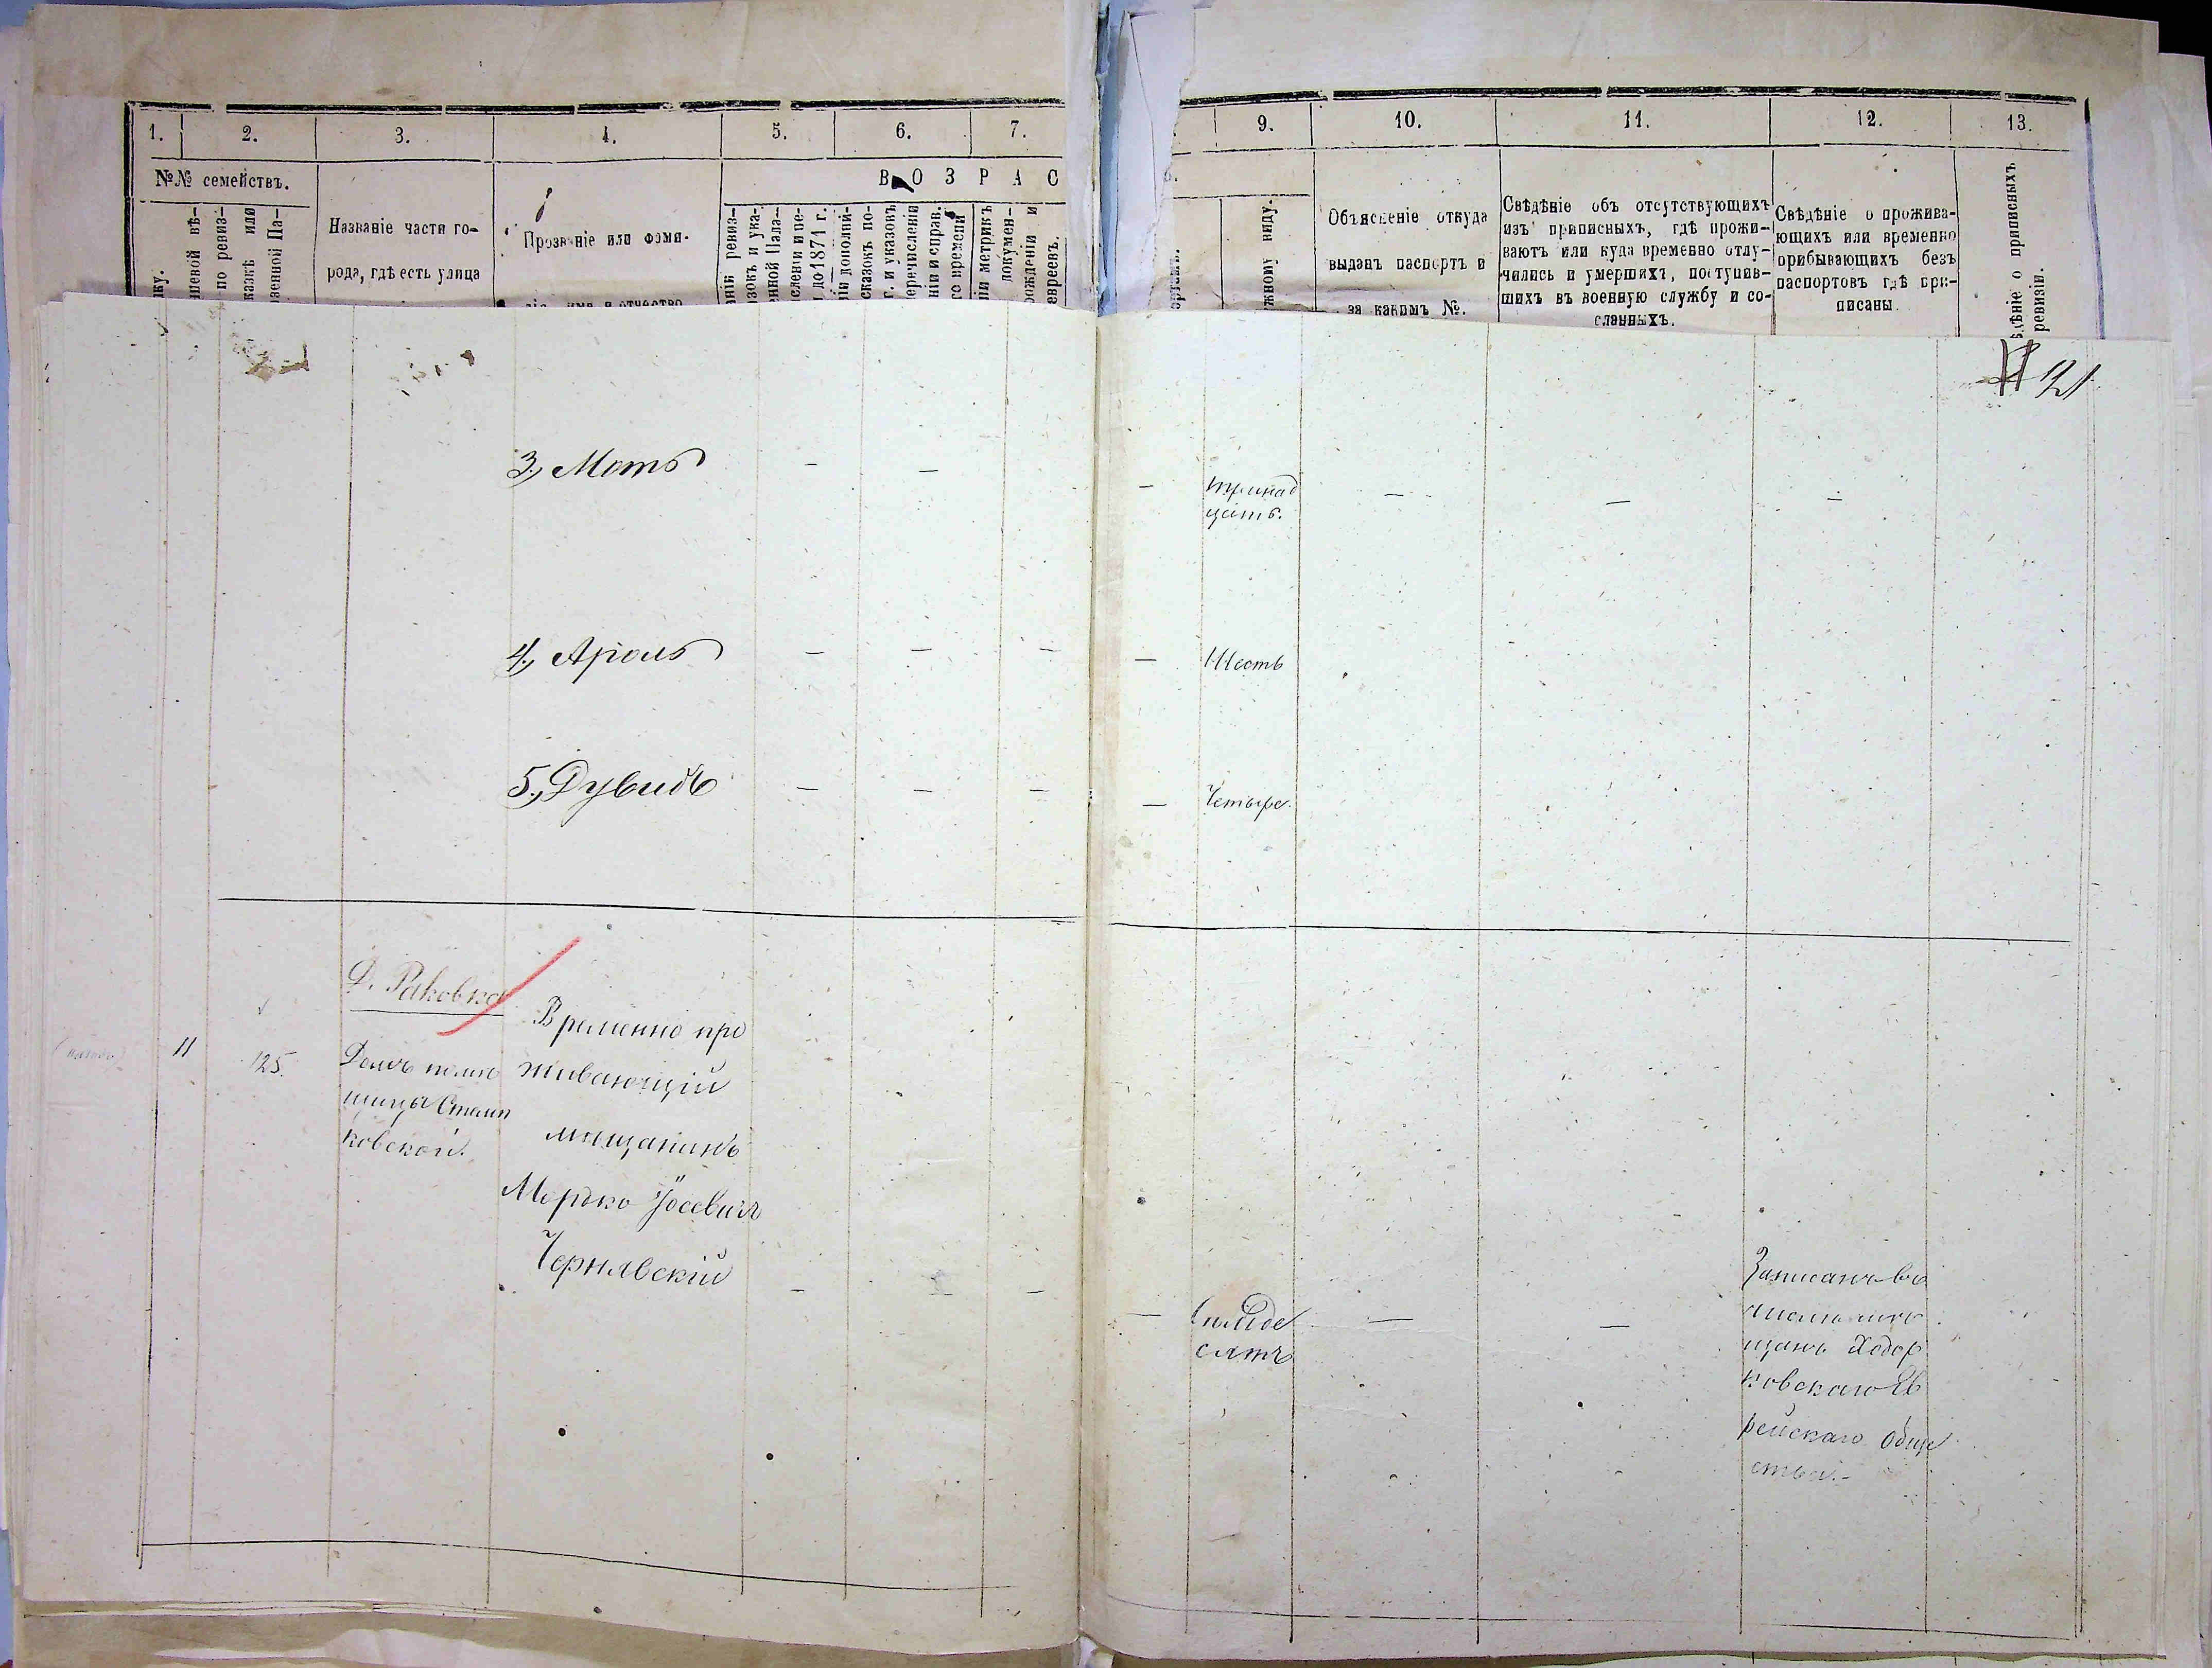 1. 2. 3. 4. 5. 6. 7.
9. 10. 11. 12. 13.
№№ семействъ.
В О З Р А С
Названіе части го-
рода, гдѣ есть улица
Прозваніе или фами-
имя и отчество
до 1871 г.
Объясненіе откуда
выданъ паспортъ и
за какимъ №.
Свѣдѣніе объ отсутствующихъ
изъ приписныхъ, гдѣ прожи-
ваютъ или куда временно отлу-
чились и умершихъ, поступив-
шихъ въ военную службу и со-
сланныхъ.
Свѣдѣніе о прожива-
ющихъ или временно
прибывающихъ безъ
паспортовъ гдѣ при-
писаны.
ѣніе о приписныхъ
ревизіи.
121
3, Мотъ — — — тринад
цать. — — —
4, Аронъ — — — — Шесть
5, Дувидъ — — — — Четыре.
Д. Раковка
11 125.
Домъ помѣ
щицы
ковской.
Временно про
живающій
мѣщанинъ
Мордко Іосевичъ
Чернявскій — — — —
сятъ — —
Записанъ въ
числѣ мѣ
щанъ Ходор
ковскаго Ев
рейскаго обще
ства.-